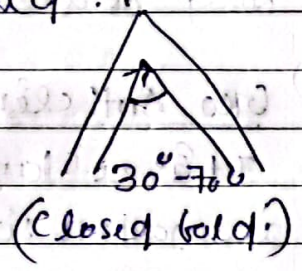 30°-70°
(Closed fold:)